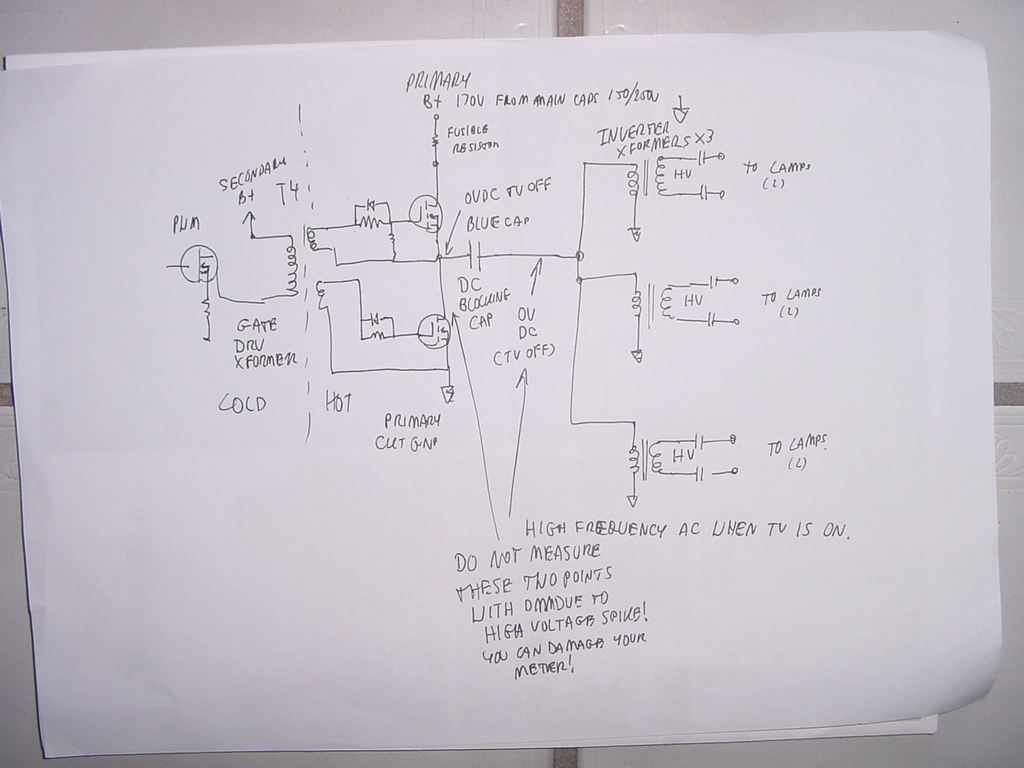 PRIMARY
B+ 170V FROM MAIN CAPS 150/250V
FUSIBLE
RESISTOR
INVERTER
XFORMERS X3
HV
TO LAMPS
(2)
SECONDARY
B+
T4
PWM
0VDC TV OFF
BLUE CAP
DC
BLOCKING
CAP
0V
DC
(TV OFF)
HV
TO LAMPS
(2)
GATE
DRV
XFORMER
COLD
HOT
PRIMARY
CKT GND
HV
TO LAMPS
(2)
HIGH FREQUENCY AC WHEN TV IS ON.
DO NOT MEASURE
THESE TWO POINTS
WITH DMM DUE TO
HIGH VOLTAGE SPIKE!
YOU CAN DAMAGE YOUR
METER!